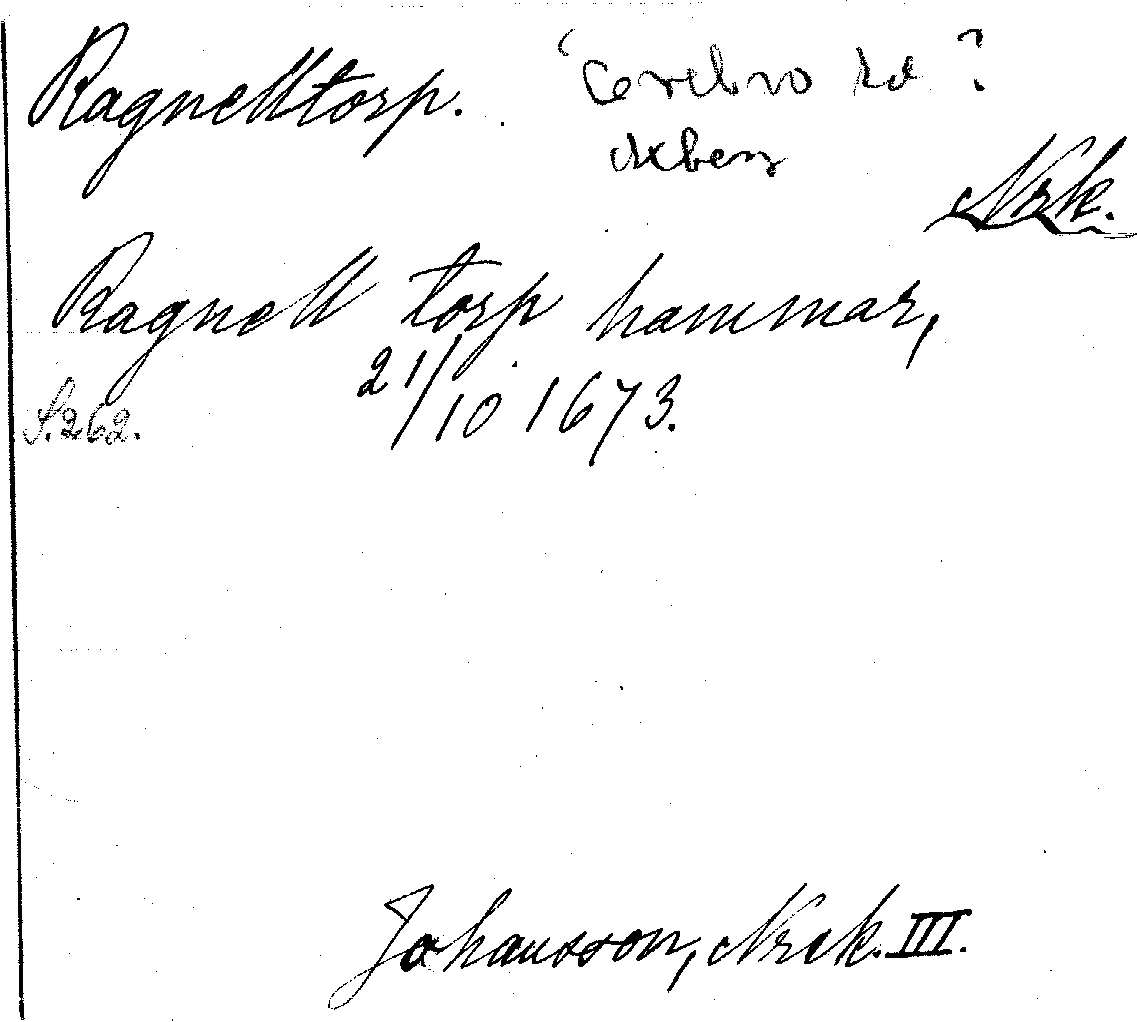 Ragnelltorp. Örebro hd ?
Axberg
Nrk.
Ragnell torp hammar,
21/10 1673.
S. 262.
Johansson, Nrck. III.